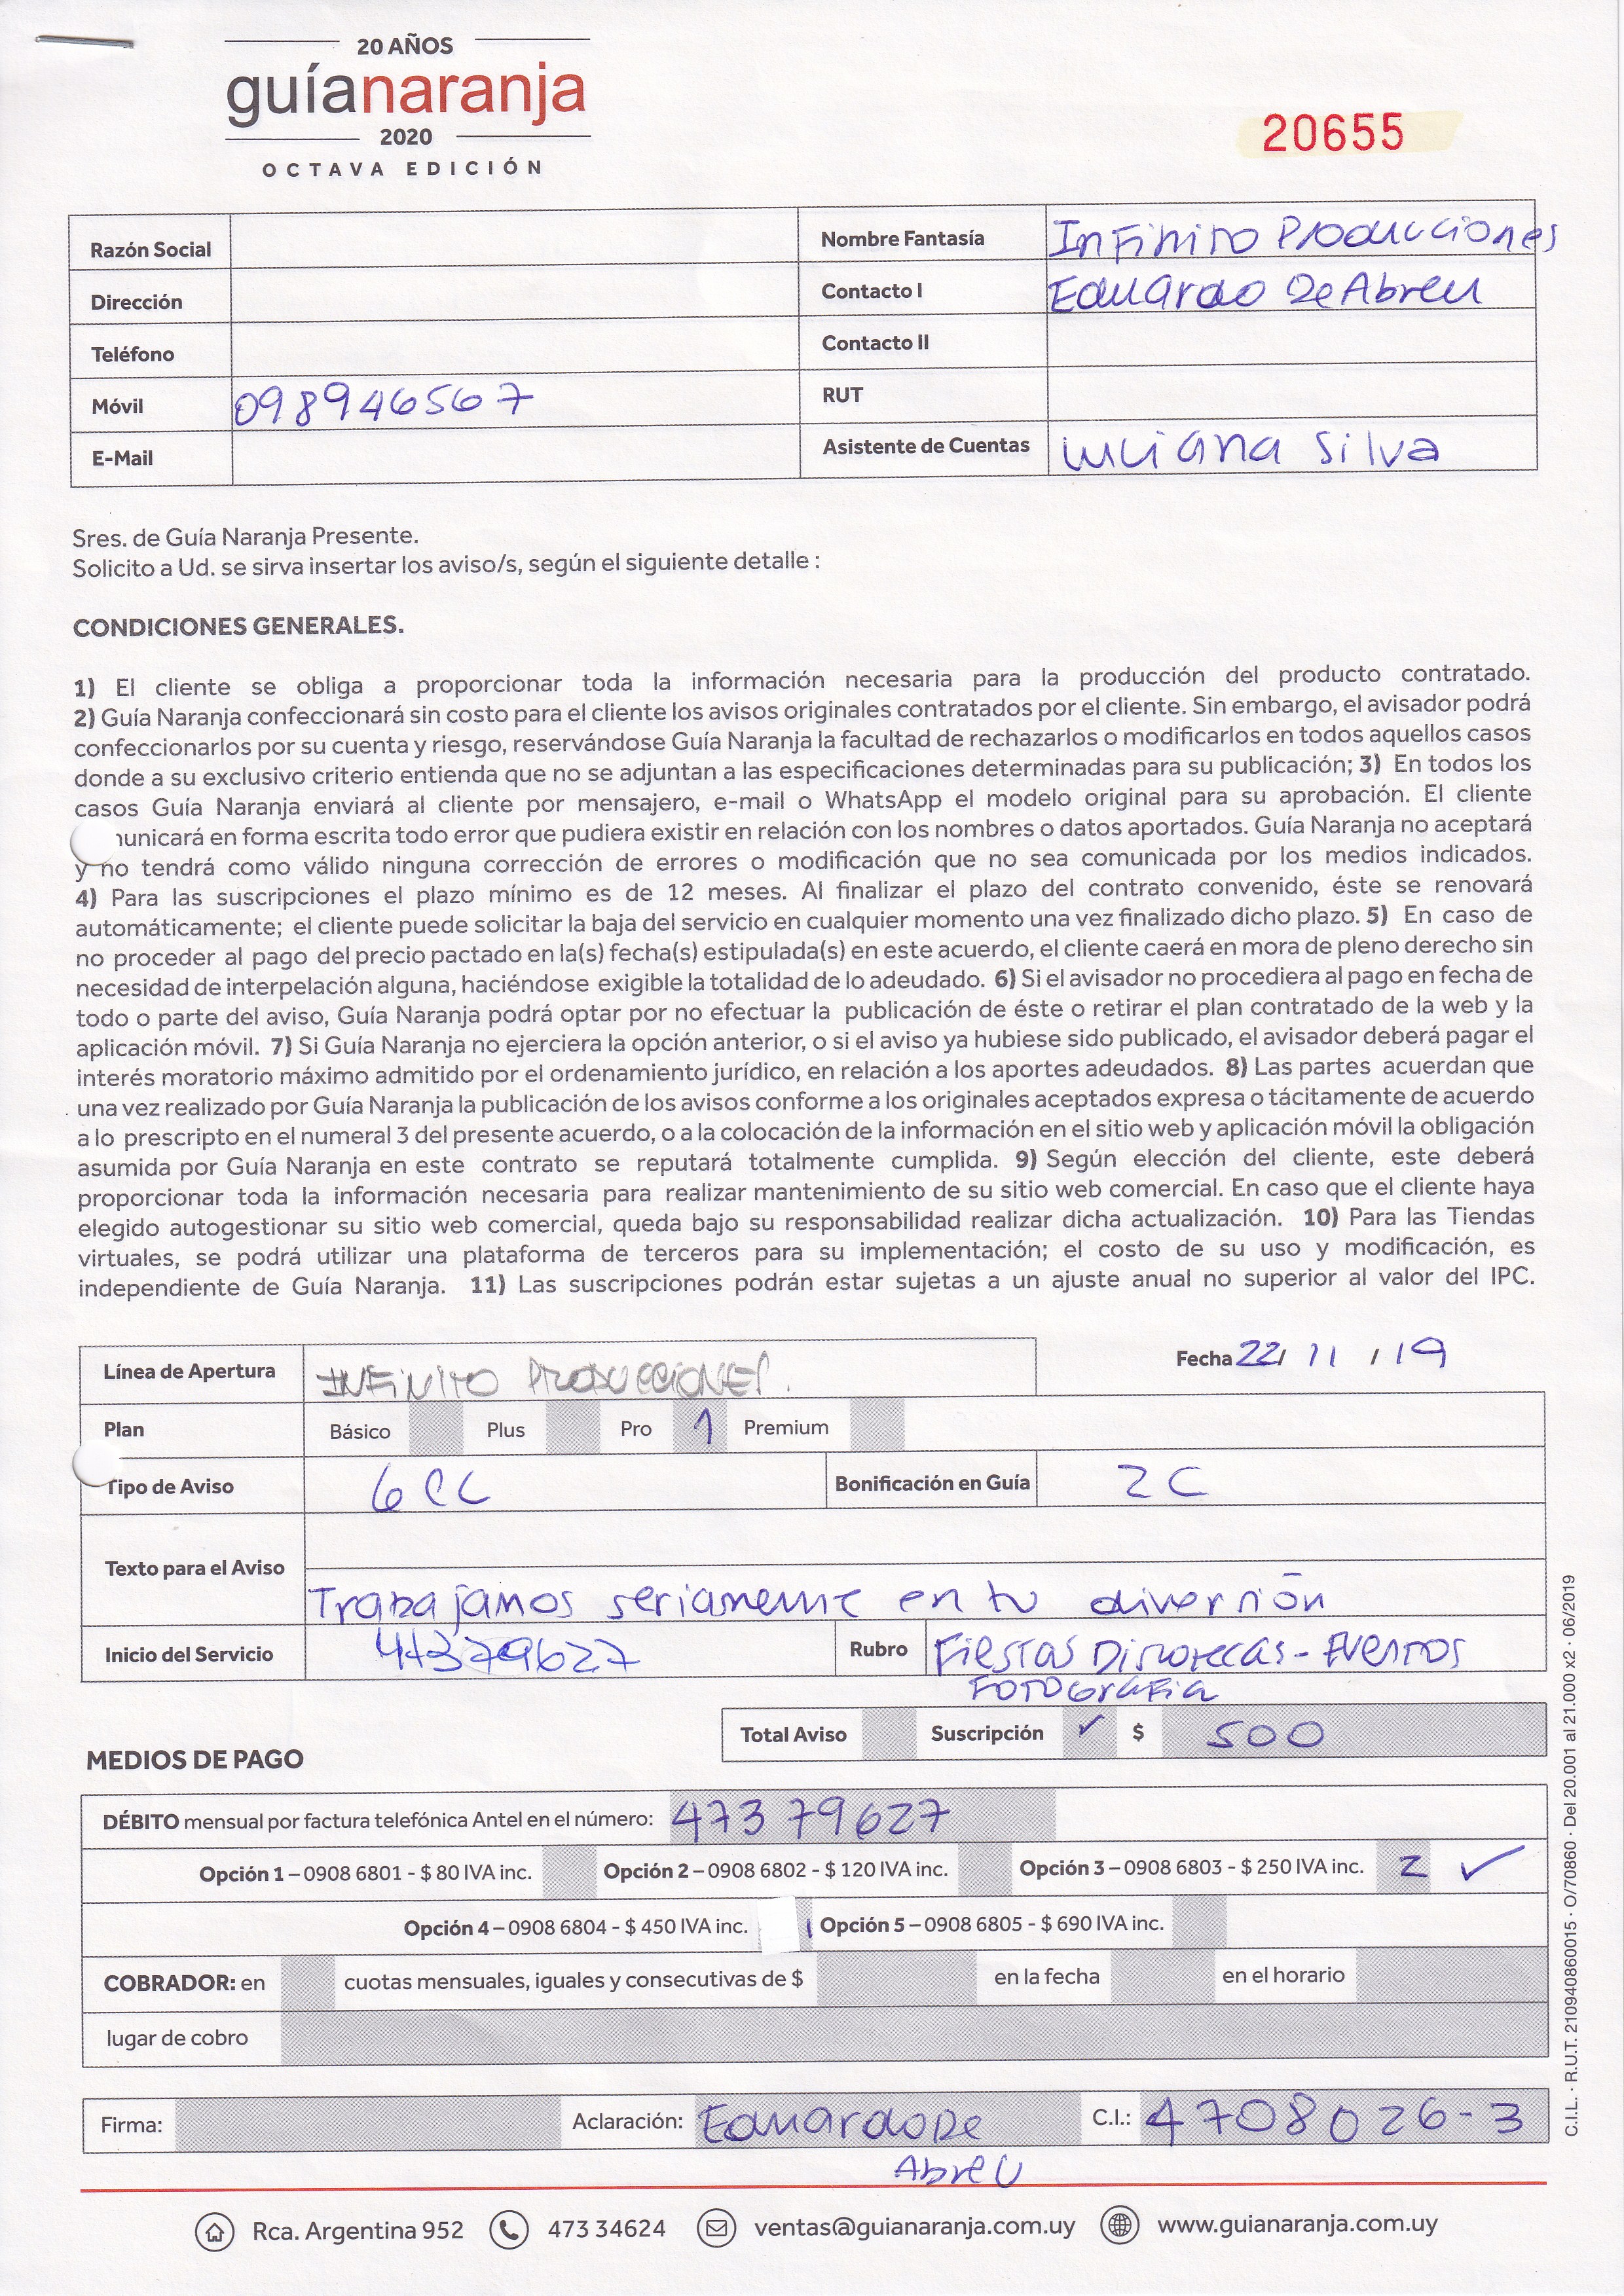 20 AÑOS
guíanaranja
2020
OCTAVA EDICIÓN
20655
Razón Social
Nombre Fantasía Infinito Producciones
Dirección
Contacto I Eduardo De Abreu
Teléfono
Contacto II
Móvil 098946567
RUT
E-Mail
Asistente de Cuentas Luciana Silva
Sres. de Guía Naranja Presente.
Solicito a Ud. se sirva insertar los aviso/s, según el siguiente detalle :
CONDICIONES GENERALES.
1) El cliente se obliga a proporcionar toda la información necesaria para la producción del producto contratado.
2) Guía Naranja confeccionará sin costo para el cliente los avisos originales contratados por el cliente. Sin embargo, el avisador podrá
confeccionarlos por su cuenta y riesgo, reservándose Guía Naranja la facultad de rechazarlos o modificarlos en todos aquellos casos
donde a su exclusivo criterio entienda que no se adjuntan a las especificaciones determinadas para su publicación; 3) En todos los
casos Guía Naranja enviará al cliente por mensajero, e-mail o WhatsApp el modelo original para su aprobación. El cliente
municará en forma escrita todo error que pudiera existir en relación con los nombres o datos aportados. Guía Naranja no aceptará
y no tendrá como válido ninguna corrección de errores o modificación que no sea comunicada por los medios indicados.
4) Para las suscripciones el plazo mínimo es de 12 meses. Al finalizar el plazo del contrato convenido, éste se renovará
automáticamente; el cliente puede solicitar la baja del servicio en cualquier momento una vez finalizado dicho plazo. 5) En caso de
no proceder al pago del precio pactado en la(s) fecha(s) estipulada(s) en este acuerdo, el cliente caerá en mora de pleno derecho sin
necesidad de interpelación alguna, haciéndose exigible la totalidad de lo adeudado. 6) Si el avisador no procediera al pago en fecha de
todo o parte del aviso, Guía Naranja podrá optar por no efectuar la publicación de éste o retirar el plan contratado de la web y la
aplicación móvil. 7) Si Guía Naranja no ejerciera la opción anterior, o si el aviso ya hubiese sido publicado, el avisador deberá pagar el
interés moratorio máximo admitido por el ordenamiento jurídico, en relación a los aportes adeudados. 8) Las partes acuerdan que
una vez realizado por Guía Naranja la publicación de los avisos conforme a los originales aceptados expresa o tácitamente de acuerdo
a lo prescripto en el numeral 3 del presente acuerdo, o a la colocación de la información en el sitio web y aplicación móvil la obligación
asumida por Guía Naranja en este contrato se reputará totalmente cumplida. 9) Según elección del cliente, este deberá
proporcionar toda la información necesaria para realizar mantenimiento de su sitio web comercial. En caso que el cliente haya
elegido autogestionar su sitio web comercial, queda bajo su responsabilidad realizar dicha actualización. 10) Para las Tiendas
virtuales, se podrá utilizar una plataforma de terceros para su implementación; el costo de su uso y modificación, es
independiente de Guía Naranja. 11) Las suscripciones podrán estar sujetas a un ajuste anual no superior al valor del IPC.
Línea de Apertura INFINITO PRODUCCIONES.
Fecha 22/ 11 / 19
Plan Básico Plus Pro 1 Premium
Tipo de Aviso 6CC Bonificación en Guía 2C
Texto para el Aviso
Trabajamos seriamente en tu diversión
Inicio del Servicio 47379627 Rubro Fiestas Discotecas - Eventos
Fotografia
Total Aviso Suscripción ✓ $ 500
MEDIOS DE PAGO
DÉBITO mensual por factura telefónica Antel en el número: 473 79627
Opción 1 – 0908 6801 - $ 80 IVA inc. Opción 2 – 0908 6802 - $ 120 IVA inc. Opción 3 – 0908 6803 - $ 250 IVA inc. 2 ✓
Opción 4 – 0908 6804 - $ 450 IVA inc. Opción 5 – 0908 6805 - $ 690 IVA inc.
COBRADOR: en cuotas mensuales, iguales y consecutivas de $ en la fecha en el horario
lugar de cobro
Firma: Aclaración: Eduardo De C.I.: 4708026-3
Abreu
Rca. Argentina 952 473 34624 ventas@guianaranja.com.uy www.guianaranja.com.uy
C.I.L. · R.U.T. 210940860015 · O/70860 · Del 20.001 al 21.000 x2 · 06/2019